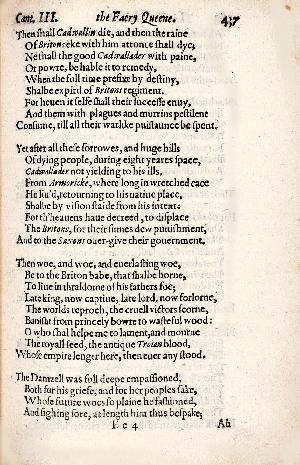 Cant. III. the Faery Queene. 437
Then shall Cadwallin die, and then the raine
Of Britons eke with him attonce shall dye;
Ne shall the good Cadwallader with paine,
Or powre, be hable it to remedy,
When the full time prefixt by destiny,
Shalbe expird of Britons regiment.
For heuen it selfe shall their successe enuy,
And them with plagues and murrins pestilent
Consume, till all their warlike puissaunce be spent.
Yet after all these sorrowes, and huge hills
Of dying people, during eight yeares space,
Cadwallader not yielding to his ills,
From Armoricke, where long in wretched cace
He liu'd, retourning to his natiue place,
Shalbe by vision staide from his intent:
For th'heauens haue decreed, to displace
The Britons, for their sinnes dew punishment,
And to the Saxons ouer-giue their gouernment.
Then woe, and woe, and euerlasting woe,
Be to the Briton babe, that shalbe borne,
To liue in thraldome of his fathers foe;
Late king, now captiue, late lord, now forlorne,
The worlds reproch, the cruell victors scorne,
Banisht from princely bowre to wastefull wood:
O who shall helpe me to lament, and mourne
The royall seed, the antique Troian blood,
Whose empire lenger here, then euer any stood.
The Damzell was full deepe empassioned,
Both for his griefe, and for her peoples sake,
Whose future woes so plaine he fashioned,
And sighing sore, at length him thus bespake;
Ee 4 Ah